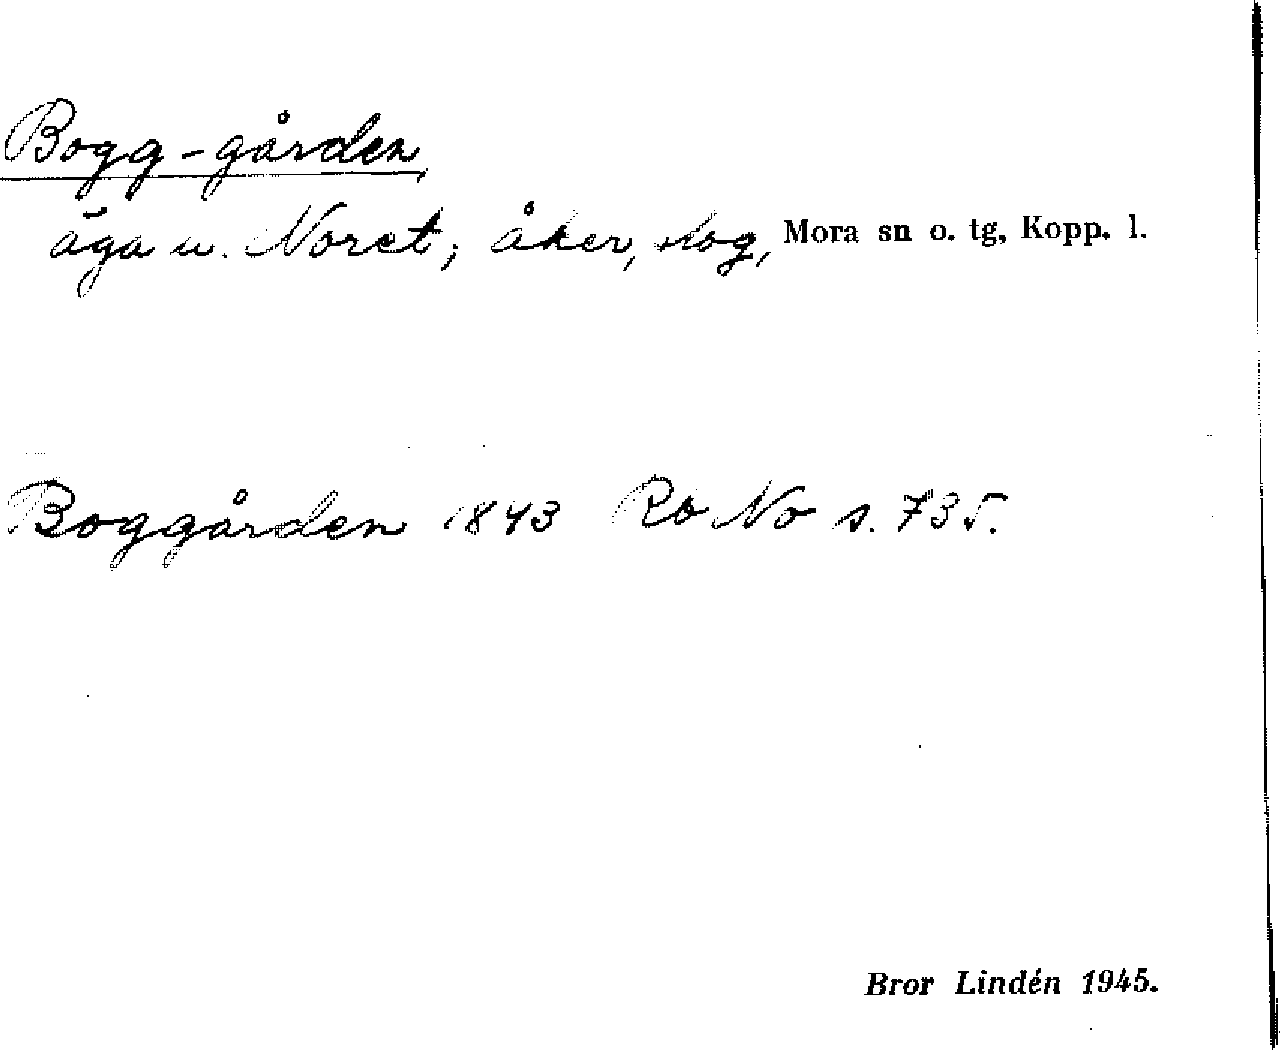 Bogg-gården,
äga u. Noret; åker, skog, Mora sn o. tg, Kopp. l.
Boggården 1843 Ro No s. 735.
Bror Lindén 1945.